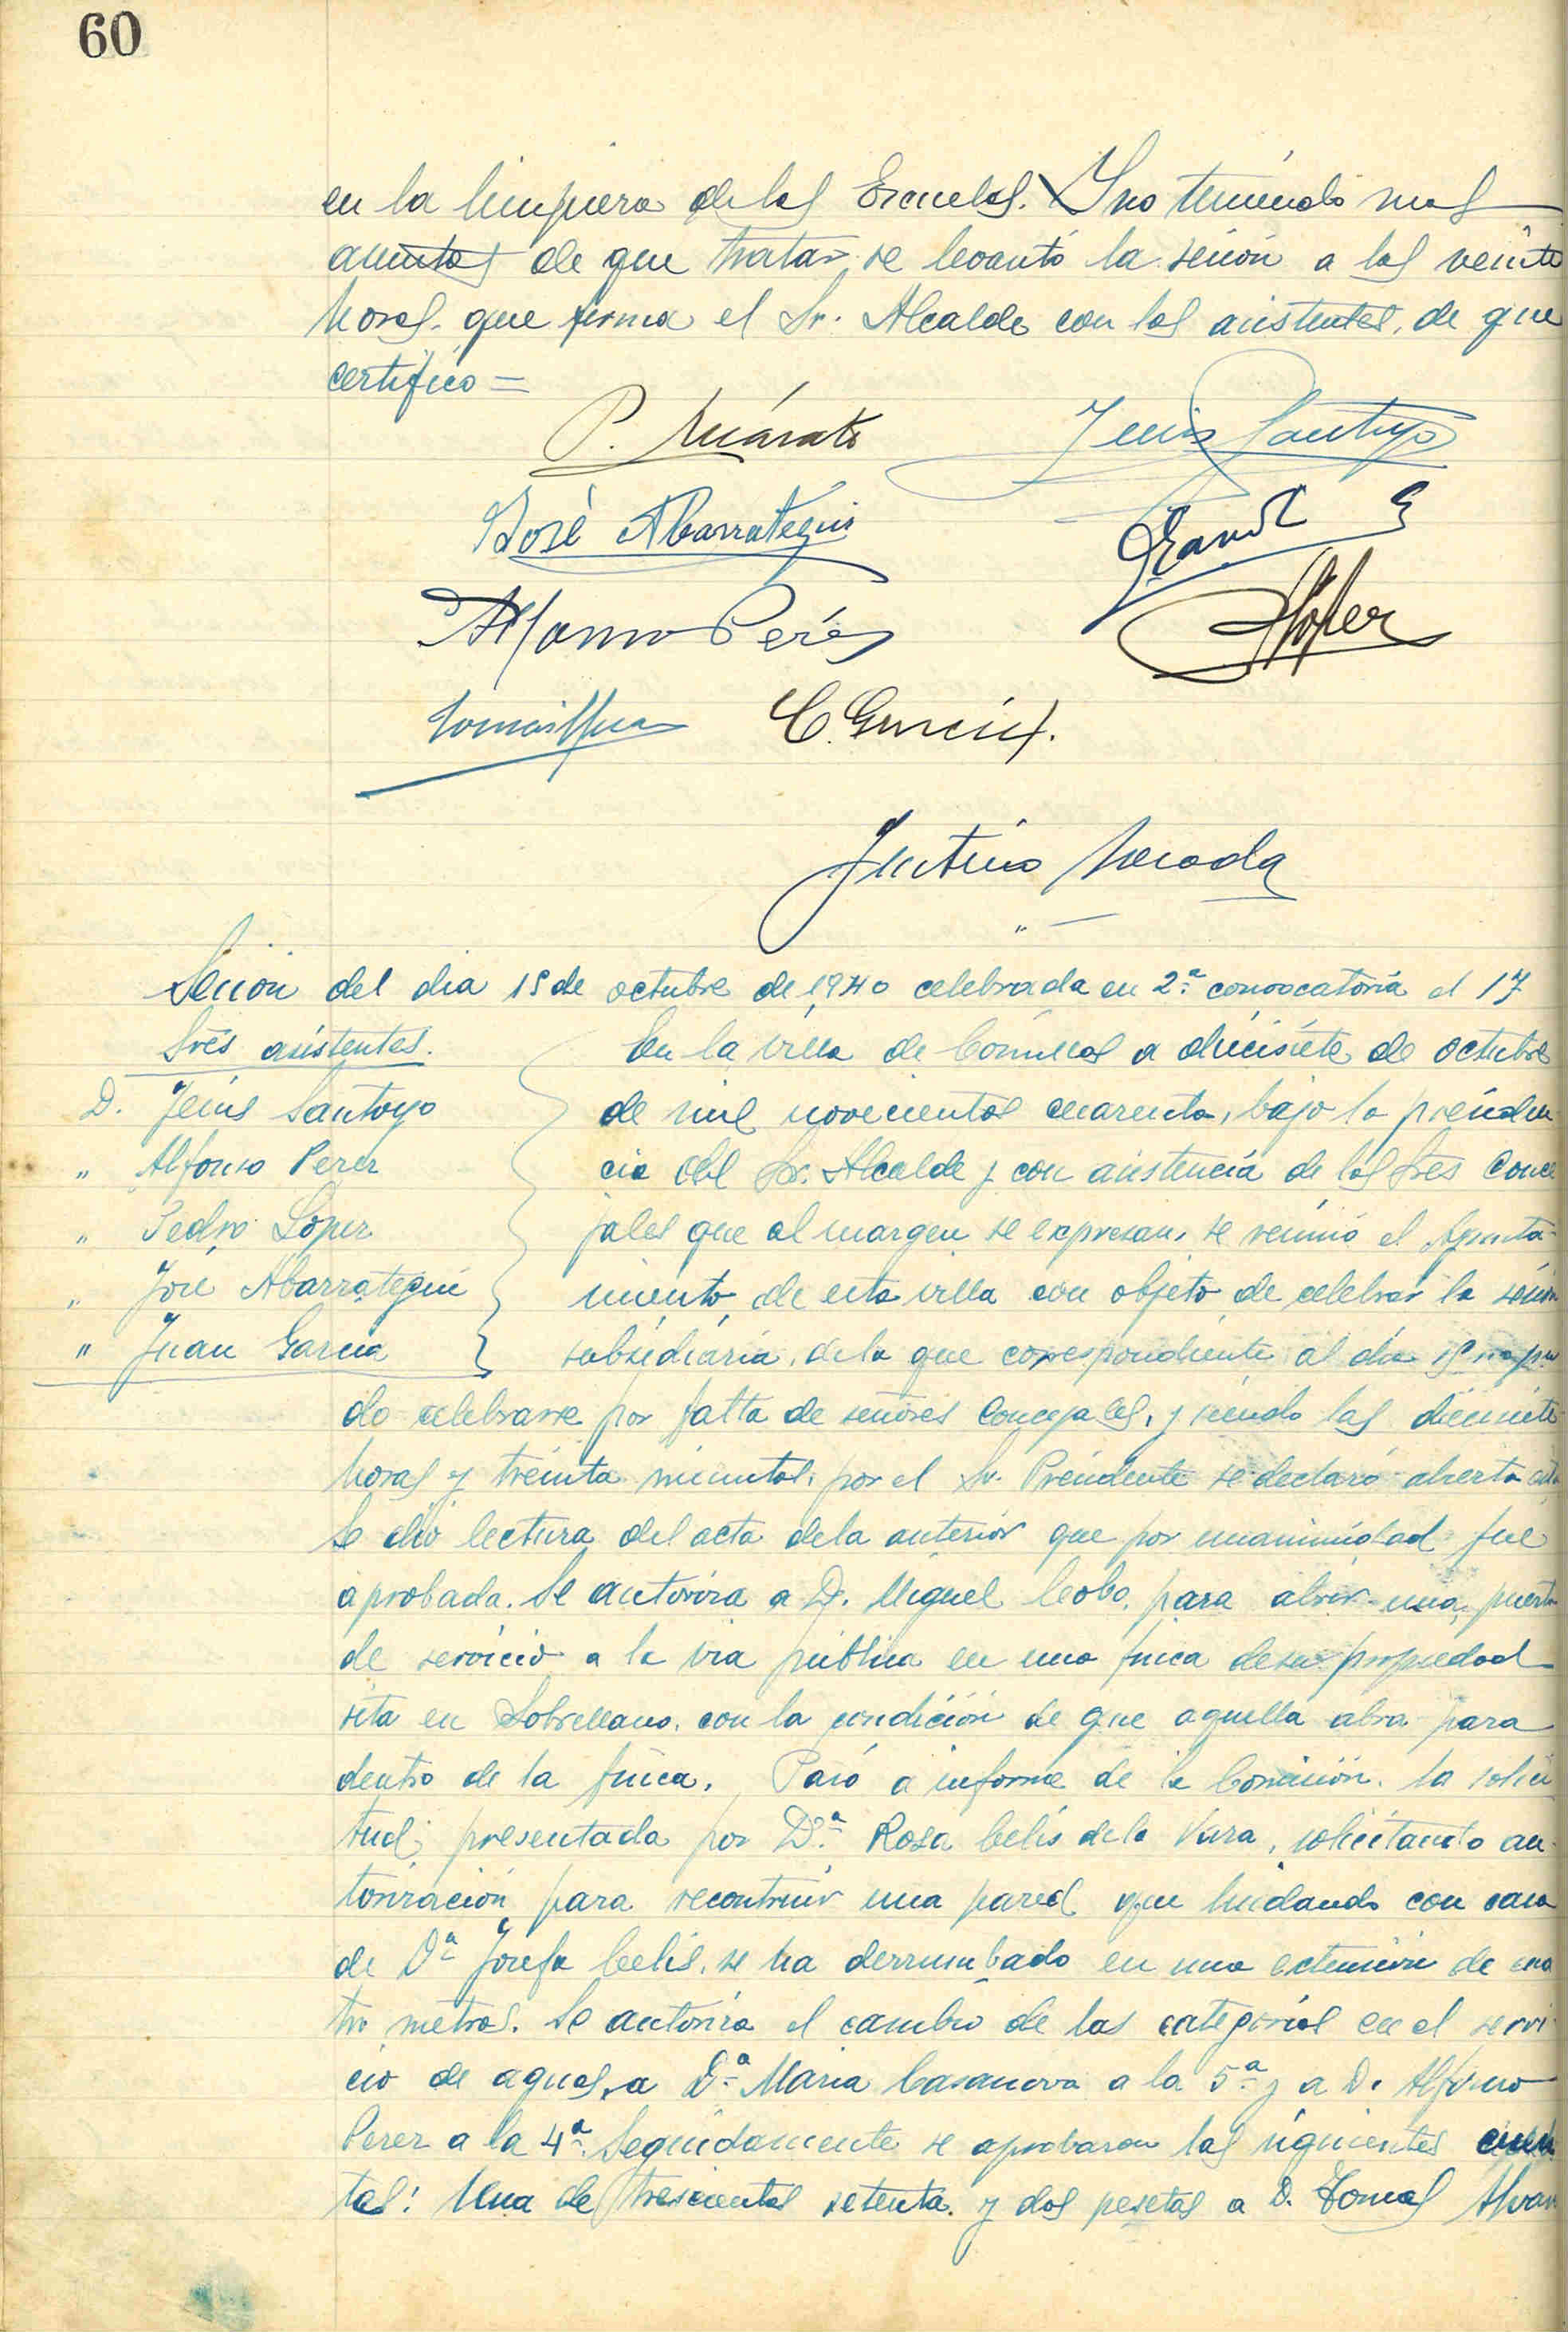 60
en la limpieza de las Escuelas. Y no teniendo mas
asuntos de que tratar se levantó la sesión a las veinte
horas, que firma el Sr. Alcalde con los asistentes, de que
certifico =
P.
Jesús Santoyo
José Abarrategui
Alfonso Pérez
López
C. García.
Sesion del dia 15 de octubre de 1940 celebrada en 2ª convocatoria el 17
Sres asistentes.
D. Jesús Santoyo
" Alfonso Perez
" Pedro Lopez
" José Abarrategui
" Juan Garcia
En la villa de Comillas a diecisiete de octubre
de mil novecientos cuarenta, bajo la presiden
cia del Sr. Alcalde y con asistencia de los Sres Conce
jales que al margen se expresan, se reunió el Ayunta-
miento de esta villa con objeto de celebrar la sesión
subsidiaria, de la que correspondiente al dia 15 no pu
do celebrarse por falta de señores Concejales, y siendo las diecisiete
horas y treinta minutos, por el Sr. Presidente se declaró abierta esta
Se dio lectura del acta de la anterior que por unanimidad fue
aprobada. Se autoriza a D. Miguel Cobo, para abrir una puerta
de servicio a la via pública en una finca de su propiedad
sita en Sobrellano, con la condición de que aquella abra para
dentro de la finca. Pasó a informe de la Comisión, la solici
tud presentada por Dª Rosa Celis de la Vara, solicitando au-
torización para recontruir una pared que lindando con casa
de Dª Josefa Celis, se ha derrumbado en una extensión de cua
tro metros. Se autoriza el cambio de las categorias en el servi
cio de aguas, a Dª Maria Casanova a la 5ª y a D. Alfonso
Perez a la 4ª. Seguidamente se aprobaron las siguientes cuen
tas: Una de trescientas setenta y dos pesetas a D. Tomas Alvar